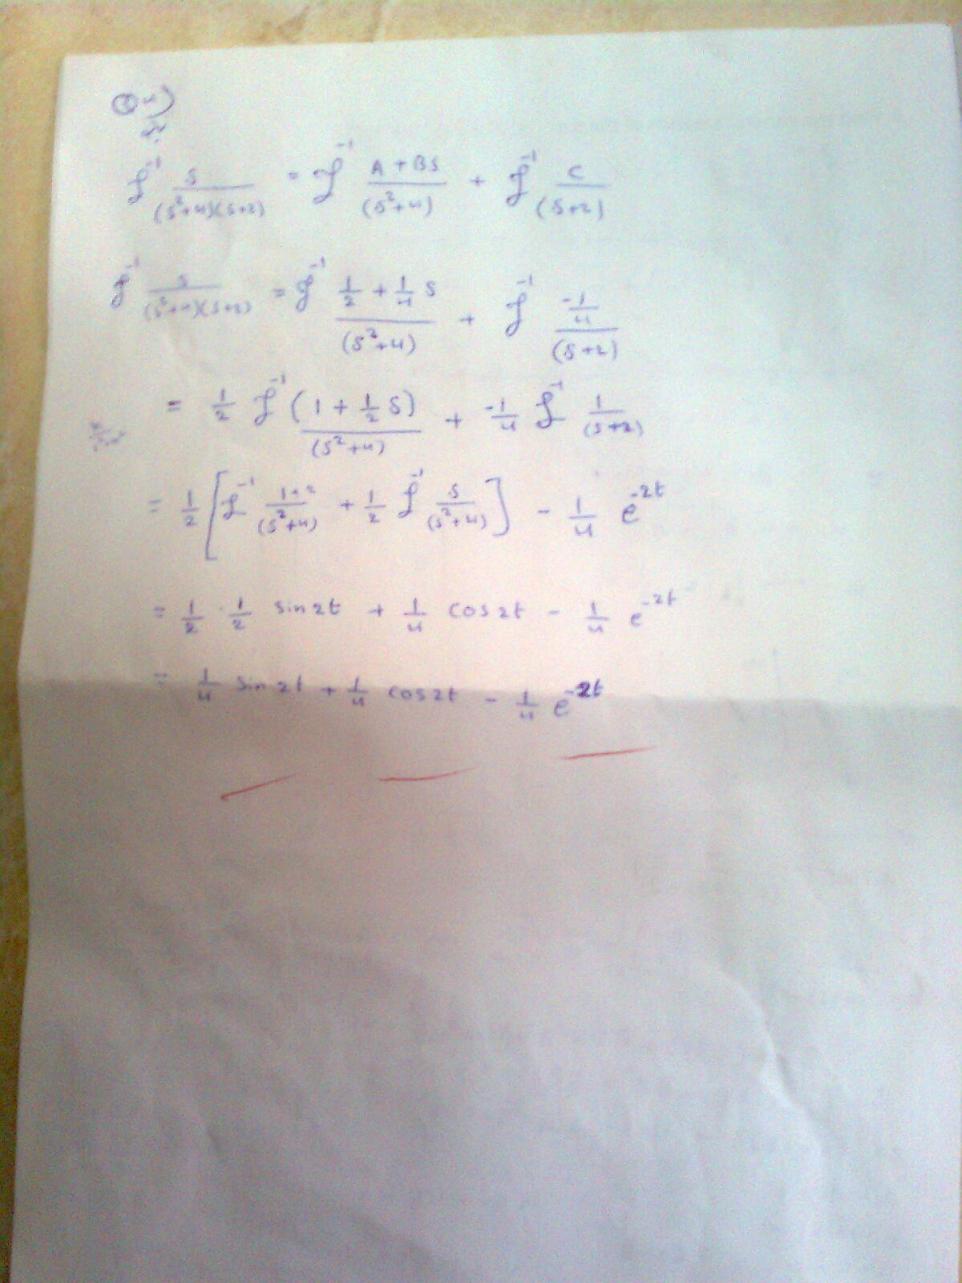 L⁻¹ s/((s²+4)(s+2)) = L⁻¹ (A+Bs)/(s²+4) + L⁻¹ C/(s+2)
L⁻¹ s/((s²+4)(s+2)) = L⁻¹ (1/2 + 1/4 s)/(s²+4) + L⁻¹ (-1/4)/(s+2)
= 1/2 L⁻¹ (1 + 1/2 s)/(s²+4) + -1/4 L⁻¹ 1/(s+2)
= 1/2 [L⁻¹ 1·2/(s²+4) + 1/2 L⁻¹ s/(s²+4)] - 1/4 e^-2t
= 1/2 · 1/2 sin2t + 1/4 cos2t - 1/4 e^-2t
= 1/4 sin2t + 1/4 cos2t - 1/4 e^-2t